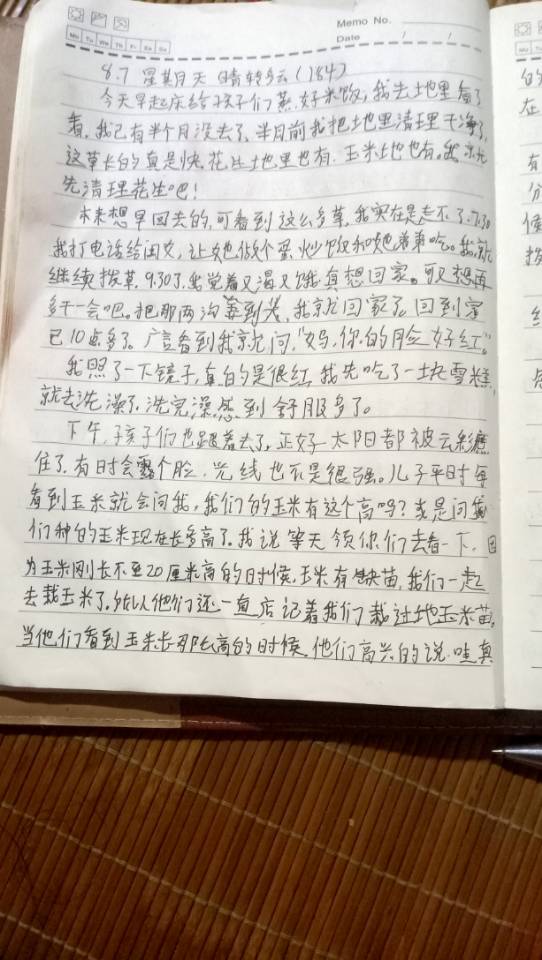 Memo No.
Mo Tu We Th Fr Sa Su
Date / /
8.7 星期天 晴转多云(184)
今天早起床给孩子们蒸好米饭,我去地里看了
看,我已有半个月没去了,半月前我把地里清理干净了,
这草长的真是快,花生地里也有,玉米地也有。我就
先清理花生吧!
本来想早回去的,可看到这么多草,我实在是走不了.7:30
我打电话给闺女,让她做个蛋炒饭和她弟弟吃。我就
继续拨草。9.30了,我觉着又渴又饿真想回家。可又想再
多干一会吧。把那两沟薅到头,我就回家了。回到家
已10点多了。广言看到我就问,“妈,你的脸好红。”
我照了一下镜子,真的是很红,我先吃了一块雪糕,
就去洗澡了,洗完澡感到舒服多了。
下午,孩子们也跟着去了,正好太阳都被云彩遮
住了,有时会露个脸,光线也不是很强。儿子平时每
看到玉米就会问我,我们的玉米有这个高吗?或是问我
们种的玉米现在长多高了。我说等天领你们去看一下,因
为玉米刚长不到20厘米高的时候,玉米有缺苗,我们一起
去栽玉米了。所以他们还一直店记着我们栽过地玉米苗。
当他们看到玉米长那么高的时候,他们高兴的说.哇真